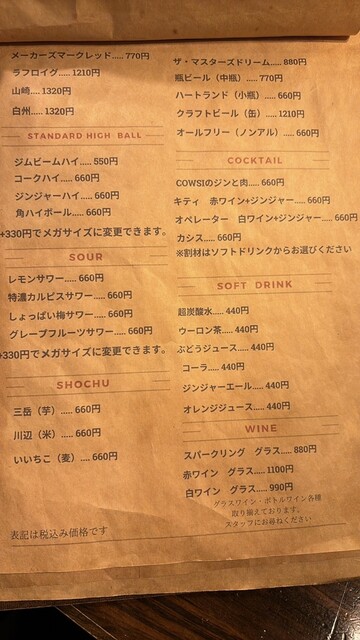 メーカーズマークレッド..... 770円
ラフロイグ..... 1210円
山崎.... 1320円
白州..... 1320円
STANDARD HIGH BALL
ジムビームハイ..... 550円
コークハイ..... 660円
ジンジャーハイ..... 660円
角ハイボール..... 660円
+330円でメガサイズに変更できます。
SOUR
レモンサワー..... 660円
特濃カルピスサワー..... 660円
しょっぱい梅サワー..... 660円
グレープフルーツサワー..... 660円
+330円でメガサイズに変更できます。
SHOCHU
三岳（芋）..... 660円
川辺（米）..... 660円
いいちこ（麦）.... 660円
表記は税込み価格です
ザ・マスターズドリーム..... 880円
瓶ビール（中瓶）..... 770円
ハートランド（小瓶）..... 660円
クラフトビール（缶）..... 1210円
オールフリー（ノンアル）..... 660円
COCKTAIL
COWSIのジンと肉..... 660円
キティ 赤ワイン+ジンジャー..... 660円
オペレーター 白ワイン+ジンジャー..... 660円
カシス..... 660円
※割材はソフトドリンクからお選びください
SOFT DRINK
超炭酸水..... 440円
ウーロン茶..... 440円
ぶどうジュース..... 440円
コーラ..... 440円
ジンジャーエール..... 440円
オレンジジュース..... 440円
WINE
スパークリング グラス..... 880円
赤ワイン グラス..... 1100円
白ワイン グラス..... 990円
グラスワイン・ボトルワイン各種
取り揃えております。
スタッフにお尋ねください